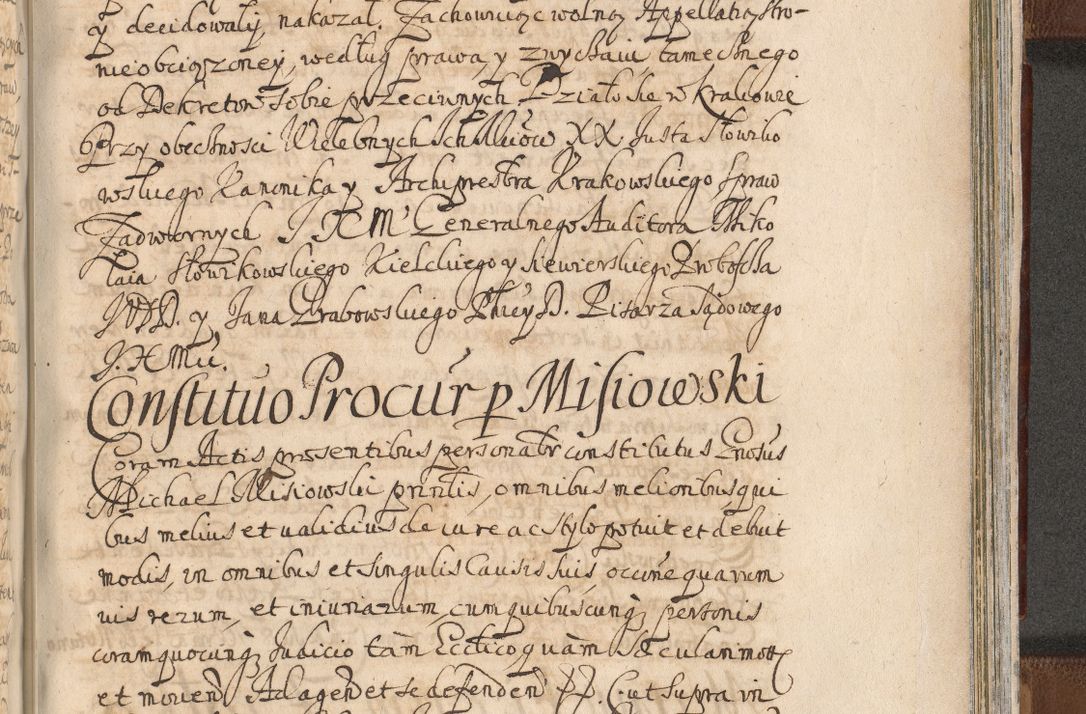 y decidowały nakazał. Zachowuiąc wolną Appellatią Stro-
nie obciązoney, według prawa y zwyczaiu tamecznego
od Dekretow sobie przeciwnych Działo się w Krakowie
Przy obecności Wielebnych Ich Mściow XX. Justa Słowiko
wskiego Kanonika y Archipresbra Krakowskiego Spraw
Zadwornych J X M' Generalnego Auditora Miko
łaia Słowikowskiego Kielckiego y Siewierskiego Proboscza
JVDD. y Jana Grabowskiego Phiey D. Pisarza Sądowego
J. X Mci.
Constituo Procur p Misiowski
Coram Actis presentibus personalr constitutus Gnosus
Michael Misiowski prinlis, omnibus melioribus qui
bus melius et validius de iure ac stylo potuit et debuit
modis, in omnibus et singulis Causis suis, occne quarum
vis rerum, et iniuriarum, cum quibuscunq personis
coram quocunq Judicio tam Ecclico quam Seculari mot
et mouen Ad agen et se defenden PP. C. ut supra in